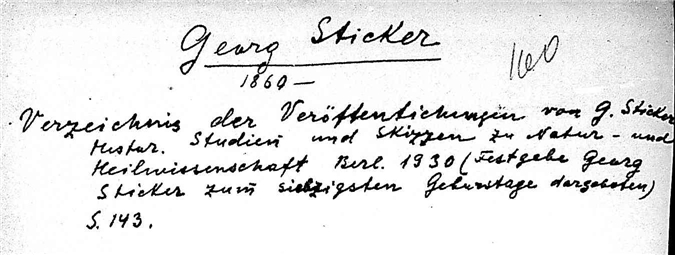 Georg Sticker
160
1860 —
Verzeichnis der Veröffentlichungen von G. Sticker
Histor. Studien und Skizzen zu Natur- und
Heilwissenschaft Berl. 1930 (Festgabe Georg
Sticker zum siebzigsten Geburtstage dargeboten)
S. 143.